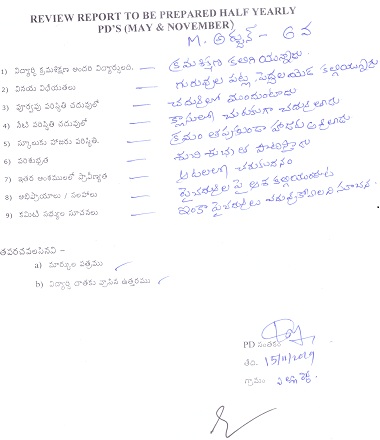 REVIEW REPORT TO BE PREPARED HALF YEARLY
PD'S (MAY & NOVEMBER)
M. అర్జున్ - 6 వ
1) విద్యార్థి క్రమశిక్షణ అందరి విద్యార్థులది. — క్రమశిక్షణ కలిగి యున్నాడు.
2) వినయ విధేయతలు — గురువుల పట్ల, పెద్దలయెడ కల్గియున్నాడు
3) పూర్వపు పరిస్థితి చదువులో — చదువులో ముందుంటాడు
4) నేటి పరిస్థితి చదువులో — క్లాసులో చురుకుగా చదువుతాడు
5) స్కూలుకు హాజరు పరిస్థితి. — క్రమం తప్పకుండా హాజరు
6) పరిశుభ్రత — శుచి శుభ్రత పాటిస్తాడు
7) ఇతర అంశములలో ప్రావీణ్యత — ఆటలలో చురుకుదనం
8) అభిప్రాయాలు / సలహాలు — పైచదువుల పై ఆశ కల్గియుండుట
9) కమిటి సభ్యుల సూచనలు — ఇంకా పైచదువులు సూచన.
తపరచవలసినవి –
a) మార్కుల పత్రము ✓
b) విద్యార్థి దాతకు వ్రాసిన ఉత్తరము ✓
PD సంతకం
తేది. 15/11/2019
గ్రామం